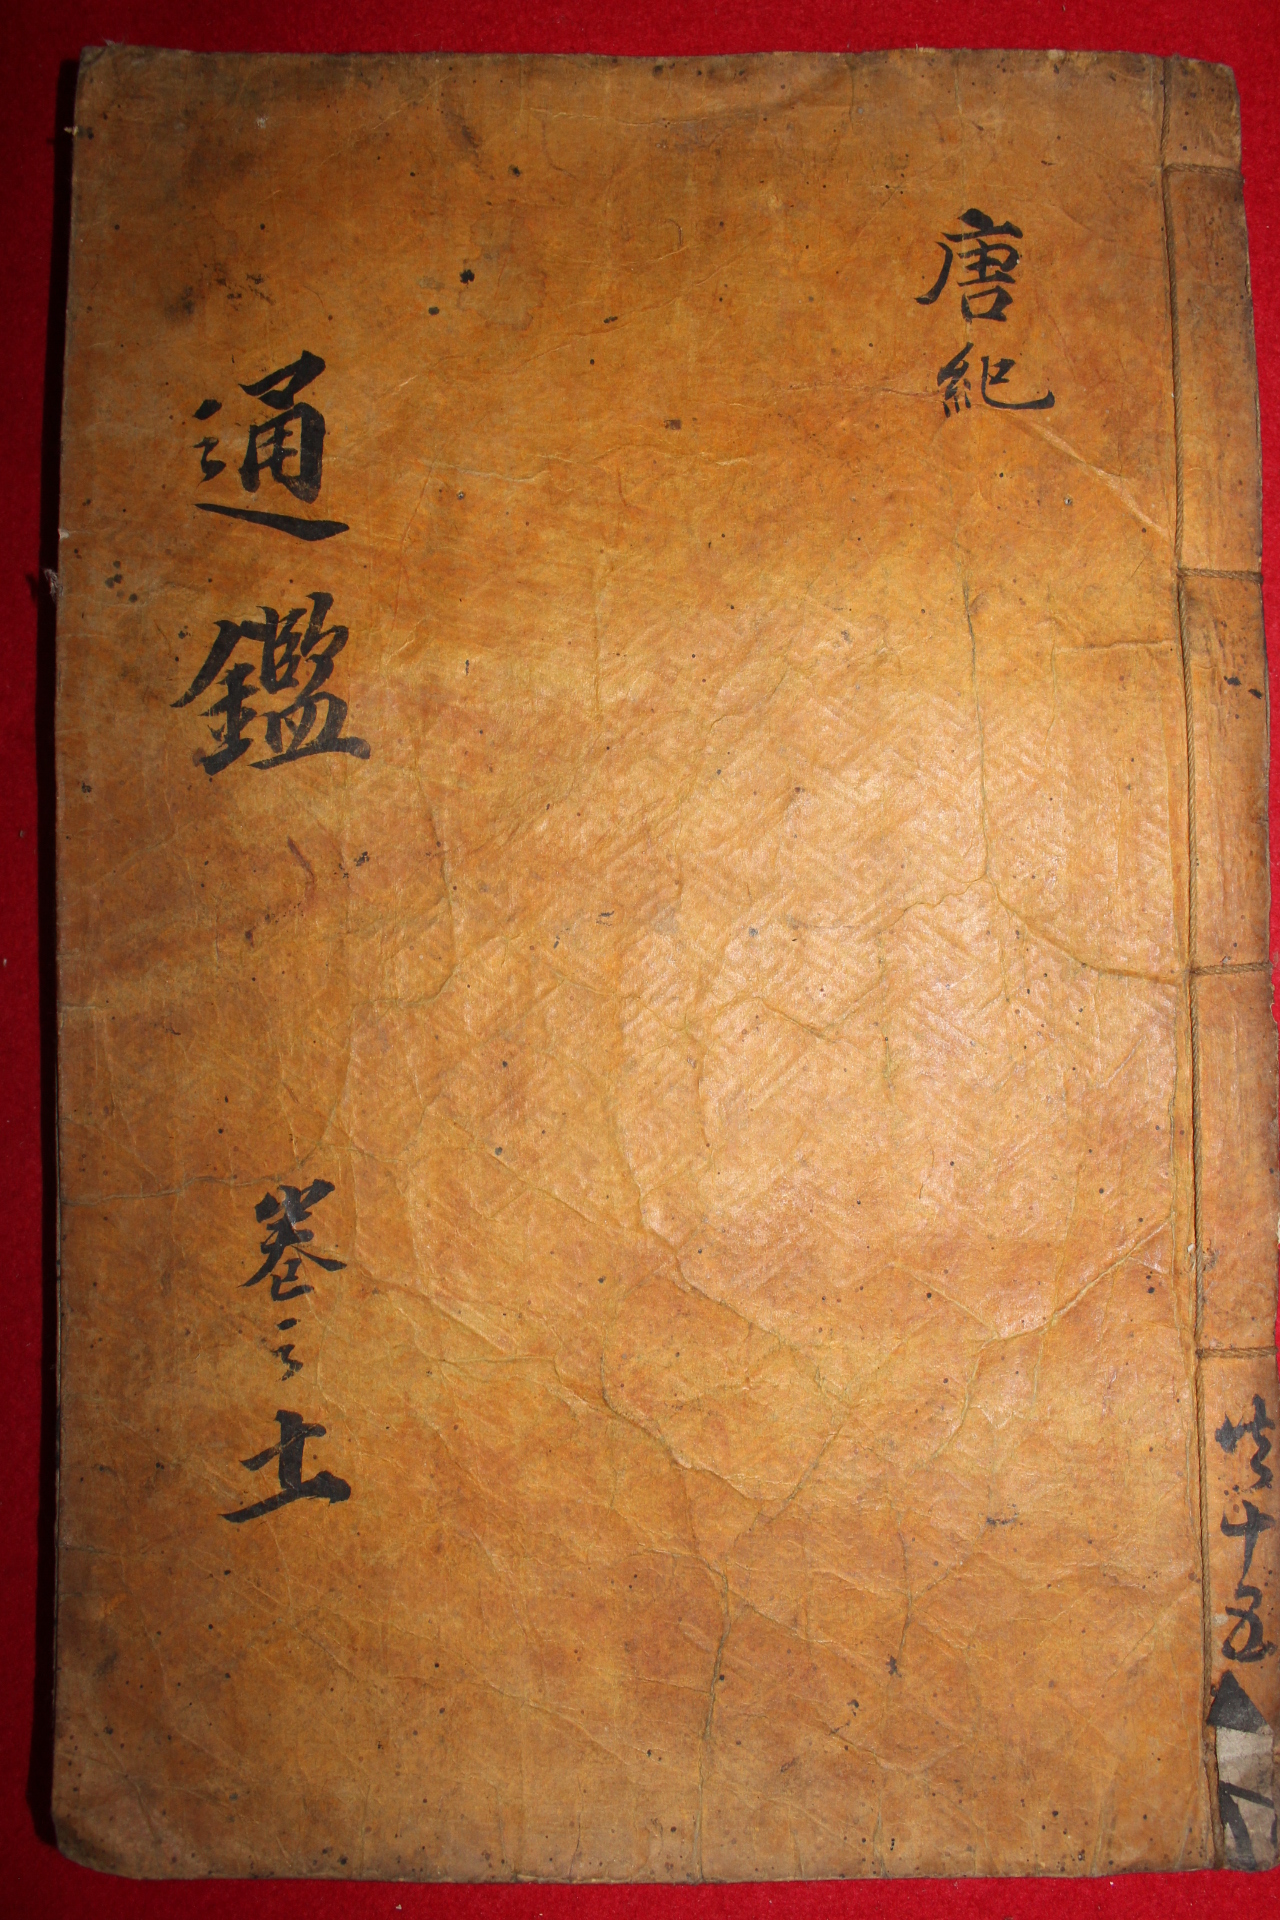 共十五
唐紀
通鑑 卷之十一